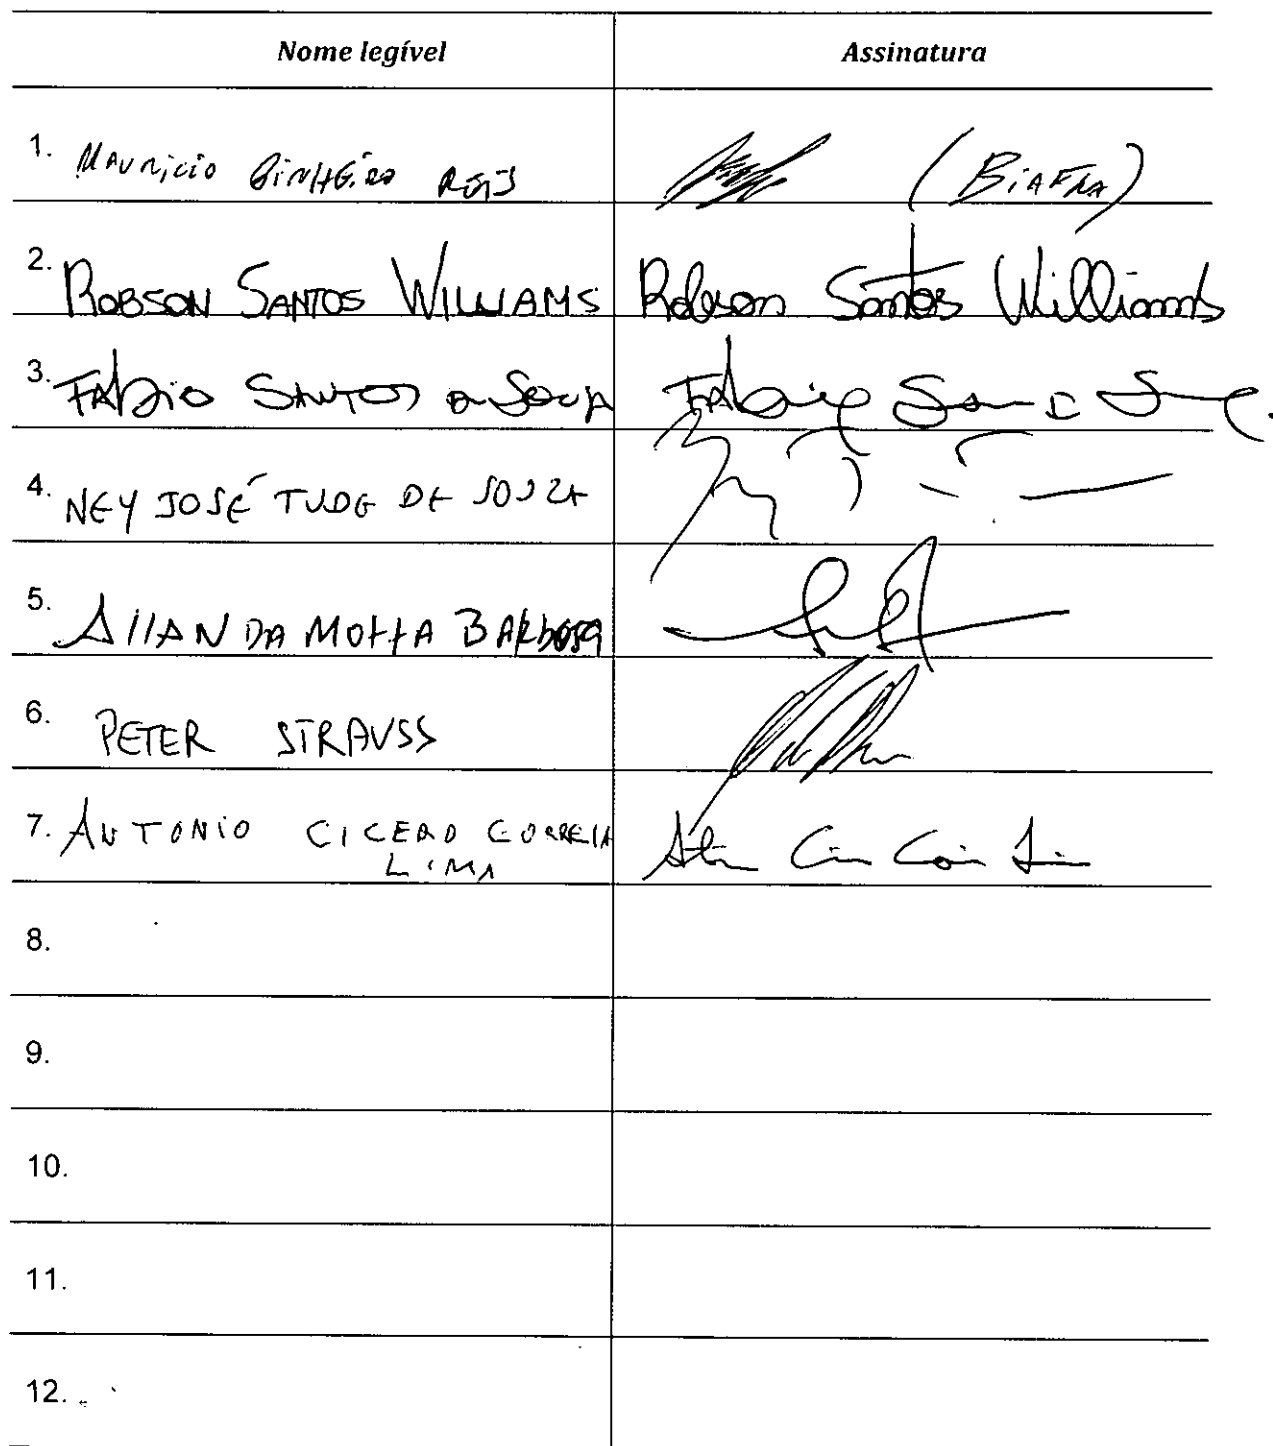 Nome legível Assinatura
1. Mauricio Pinheiro Reis (BiAFRA)
2. ROBSON SANTOS WILLIAMS Robson Santos Williams
3. FABIO SANTOS D SOUZA
4. NEY JOSÉ TUDE DE SOUZA
5. AllAN DA MOttA BARbosa
6. PETER STRAUSS
7. ANTONIO CICERO CORREIA
LIMA
8.
9.
10.
11.
12.